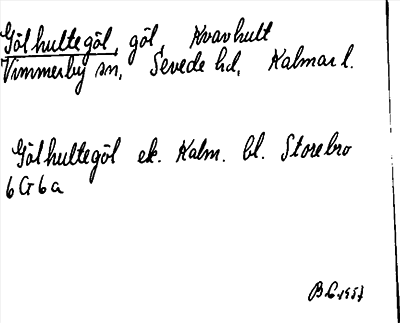 Gölhultegöl, göl, Kvarnhult
Vimmerby sn, Sevede hd, Kalmar l.
Gölhultegöl ek. Kalm. bl. Storebro
6G6a
1957